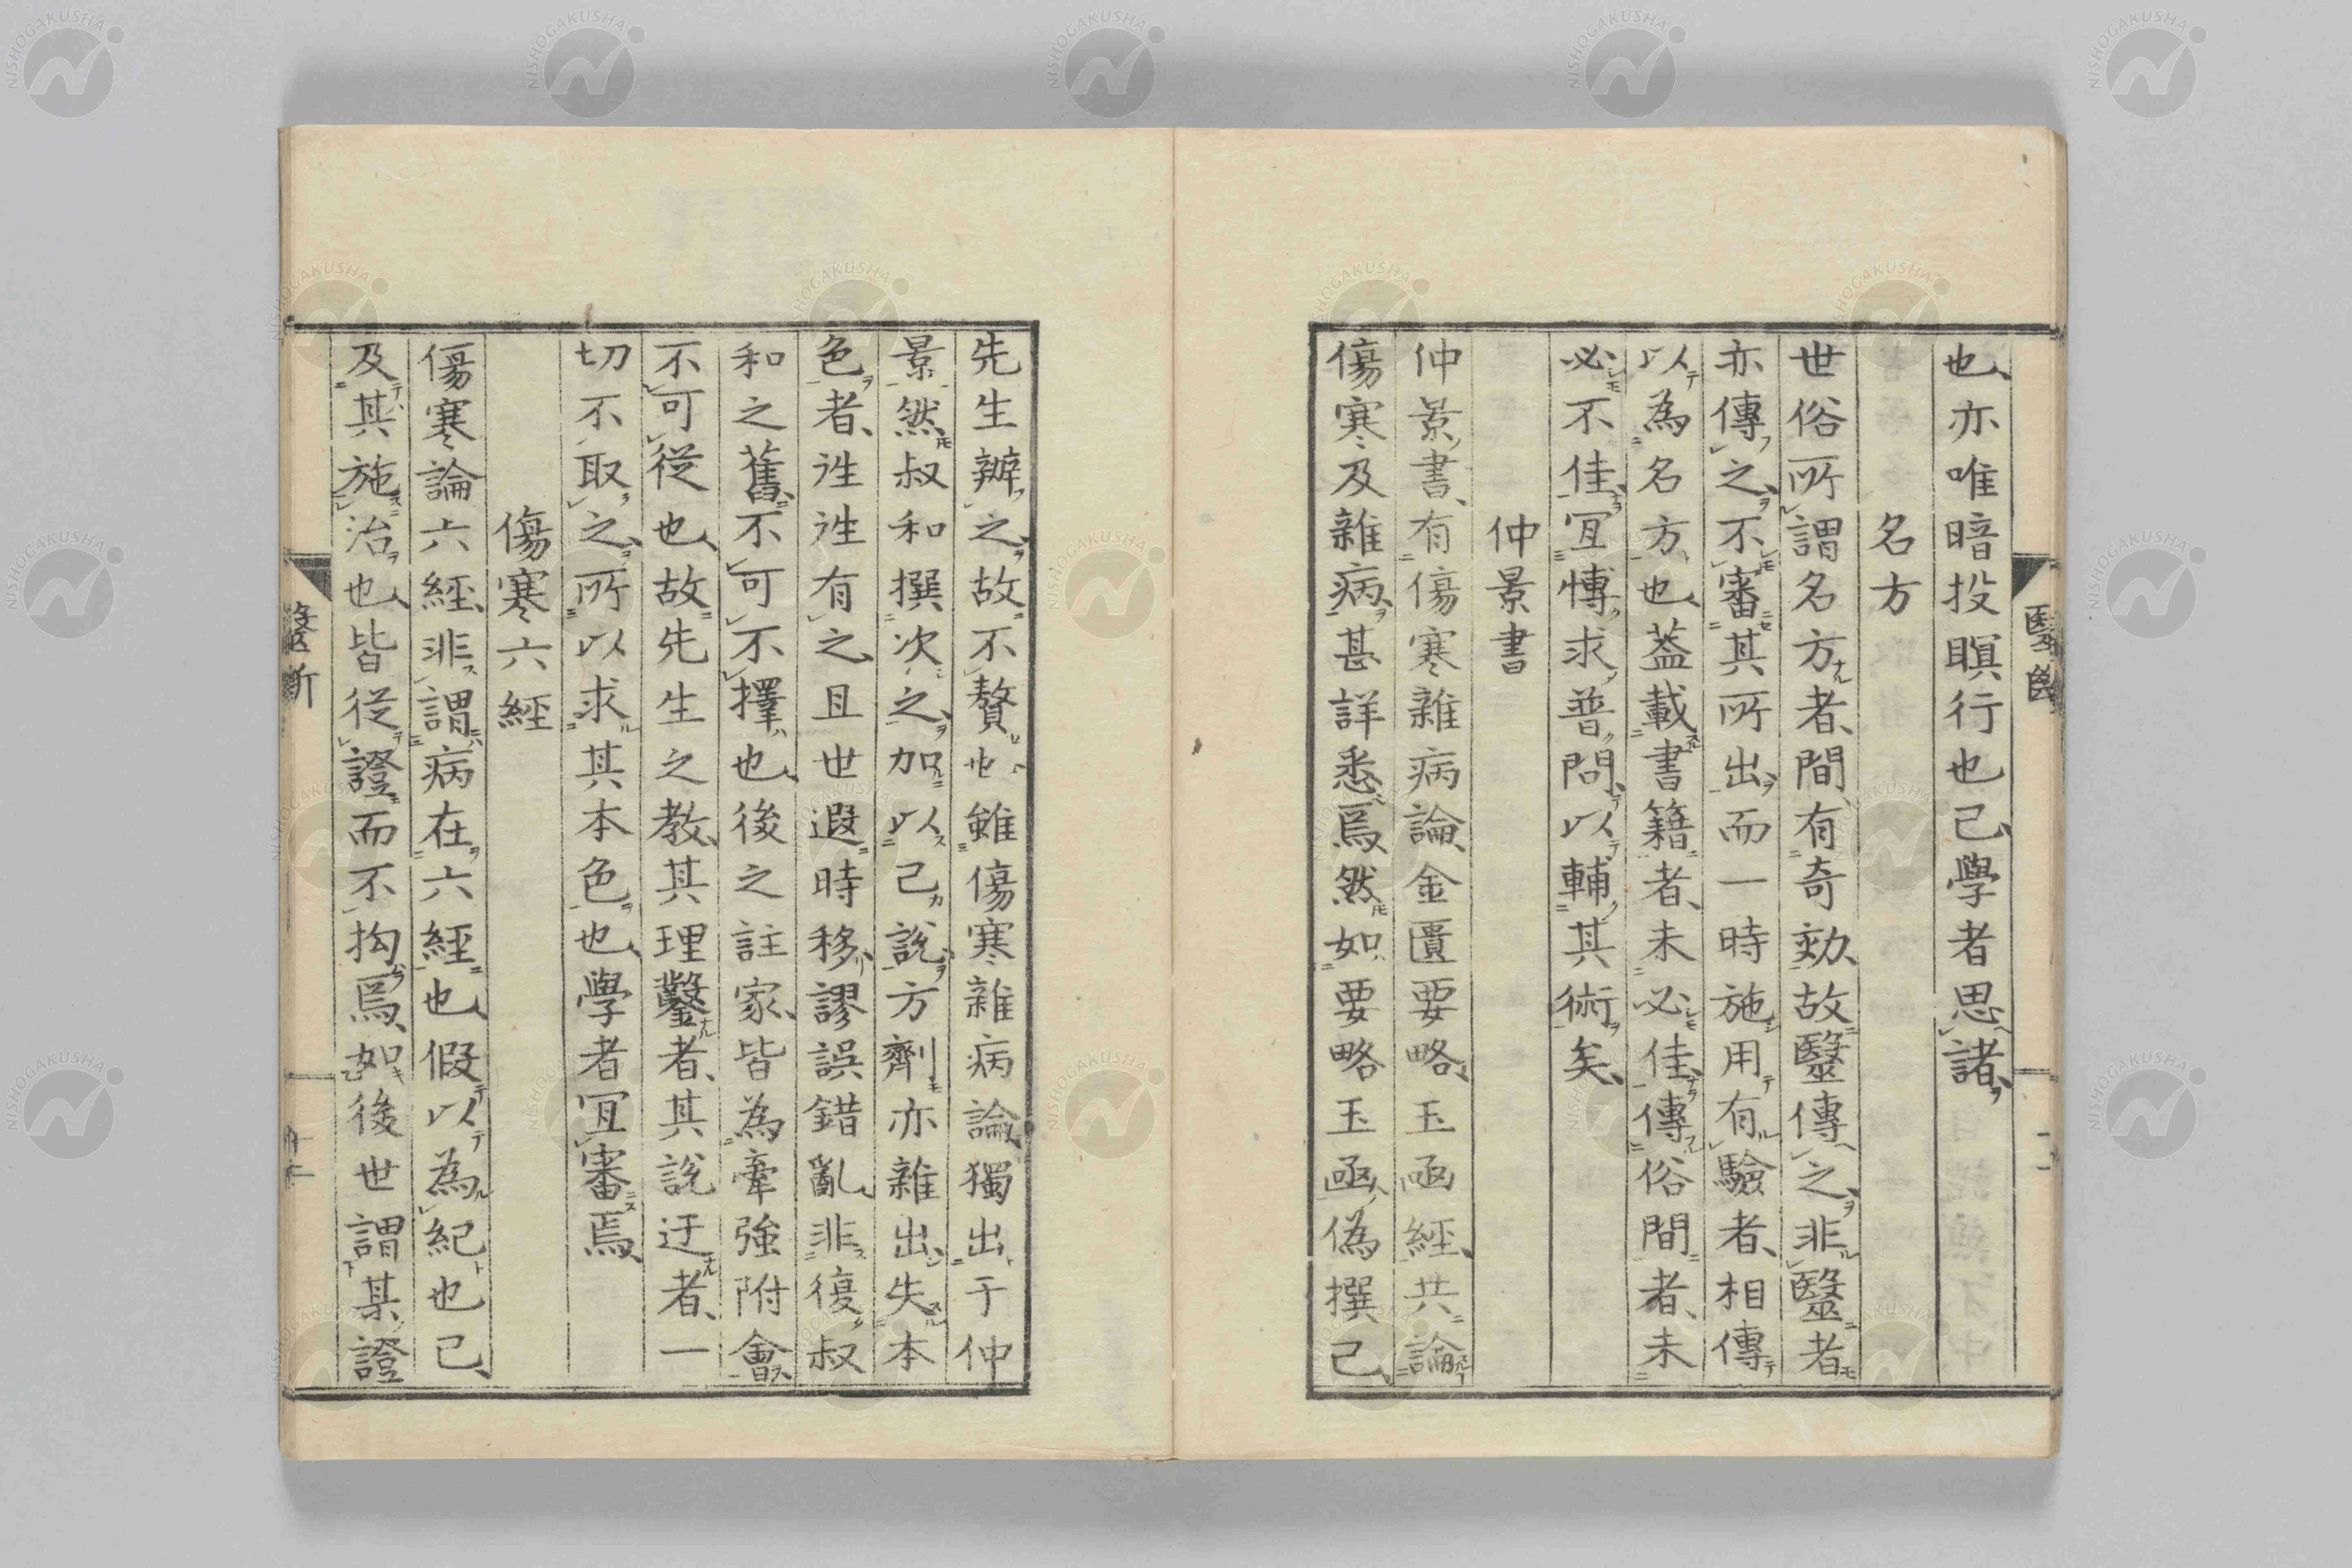 也亦唯暗投瞑行也已學者思諸
名方
世俗所謂名方者間有奇効故毉傳之非毉者
亦傳之不審其所出而一時施用有驗者相傳
以為名方也葢載書籍者未必佳傳俗間者未
必不佳宜愽求普問以輔其術矣
仲景書
仲景書有傷寒雜病論金匱要略玉函經共論
傷寒及雜病甚詳悉焉然如要略玉函偽撰已
先生辨之故不贅也雖傷寒雜病論獨出于仲
景然叔和撰次之加以己說方劑亦雜出失本
色者徃徃有之且世遐時移謬誤錯亂非復叔
和之舊不可不擇也後之註家皆為牽強附會
不可從也故先生之教其理鑿者其說迂者一
切不取之所以求其本色也學者宜審焉
傷寒六經
傷寒論六經非謂病在六經也假以為紀也已
及其施治也皆從證而不拘焉如後世謂某證
NISHOGAKUSHA